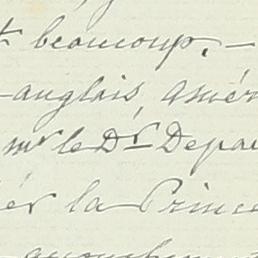 beaucoup. —
-anglais, amér
mr le Dr Depau
er la Prince